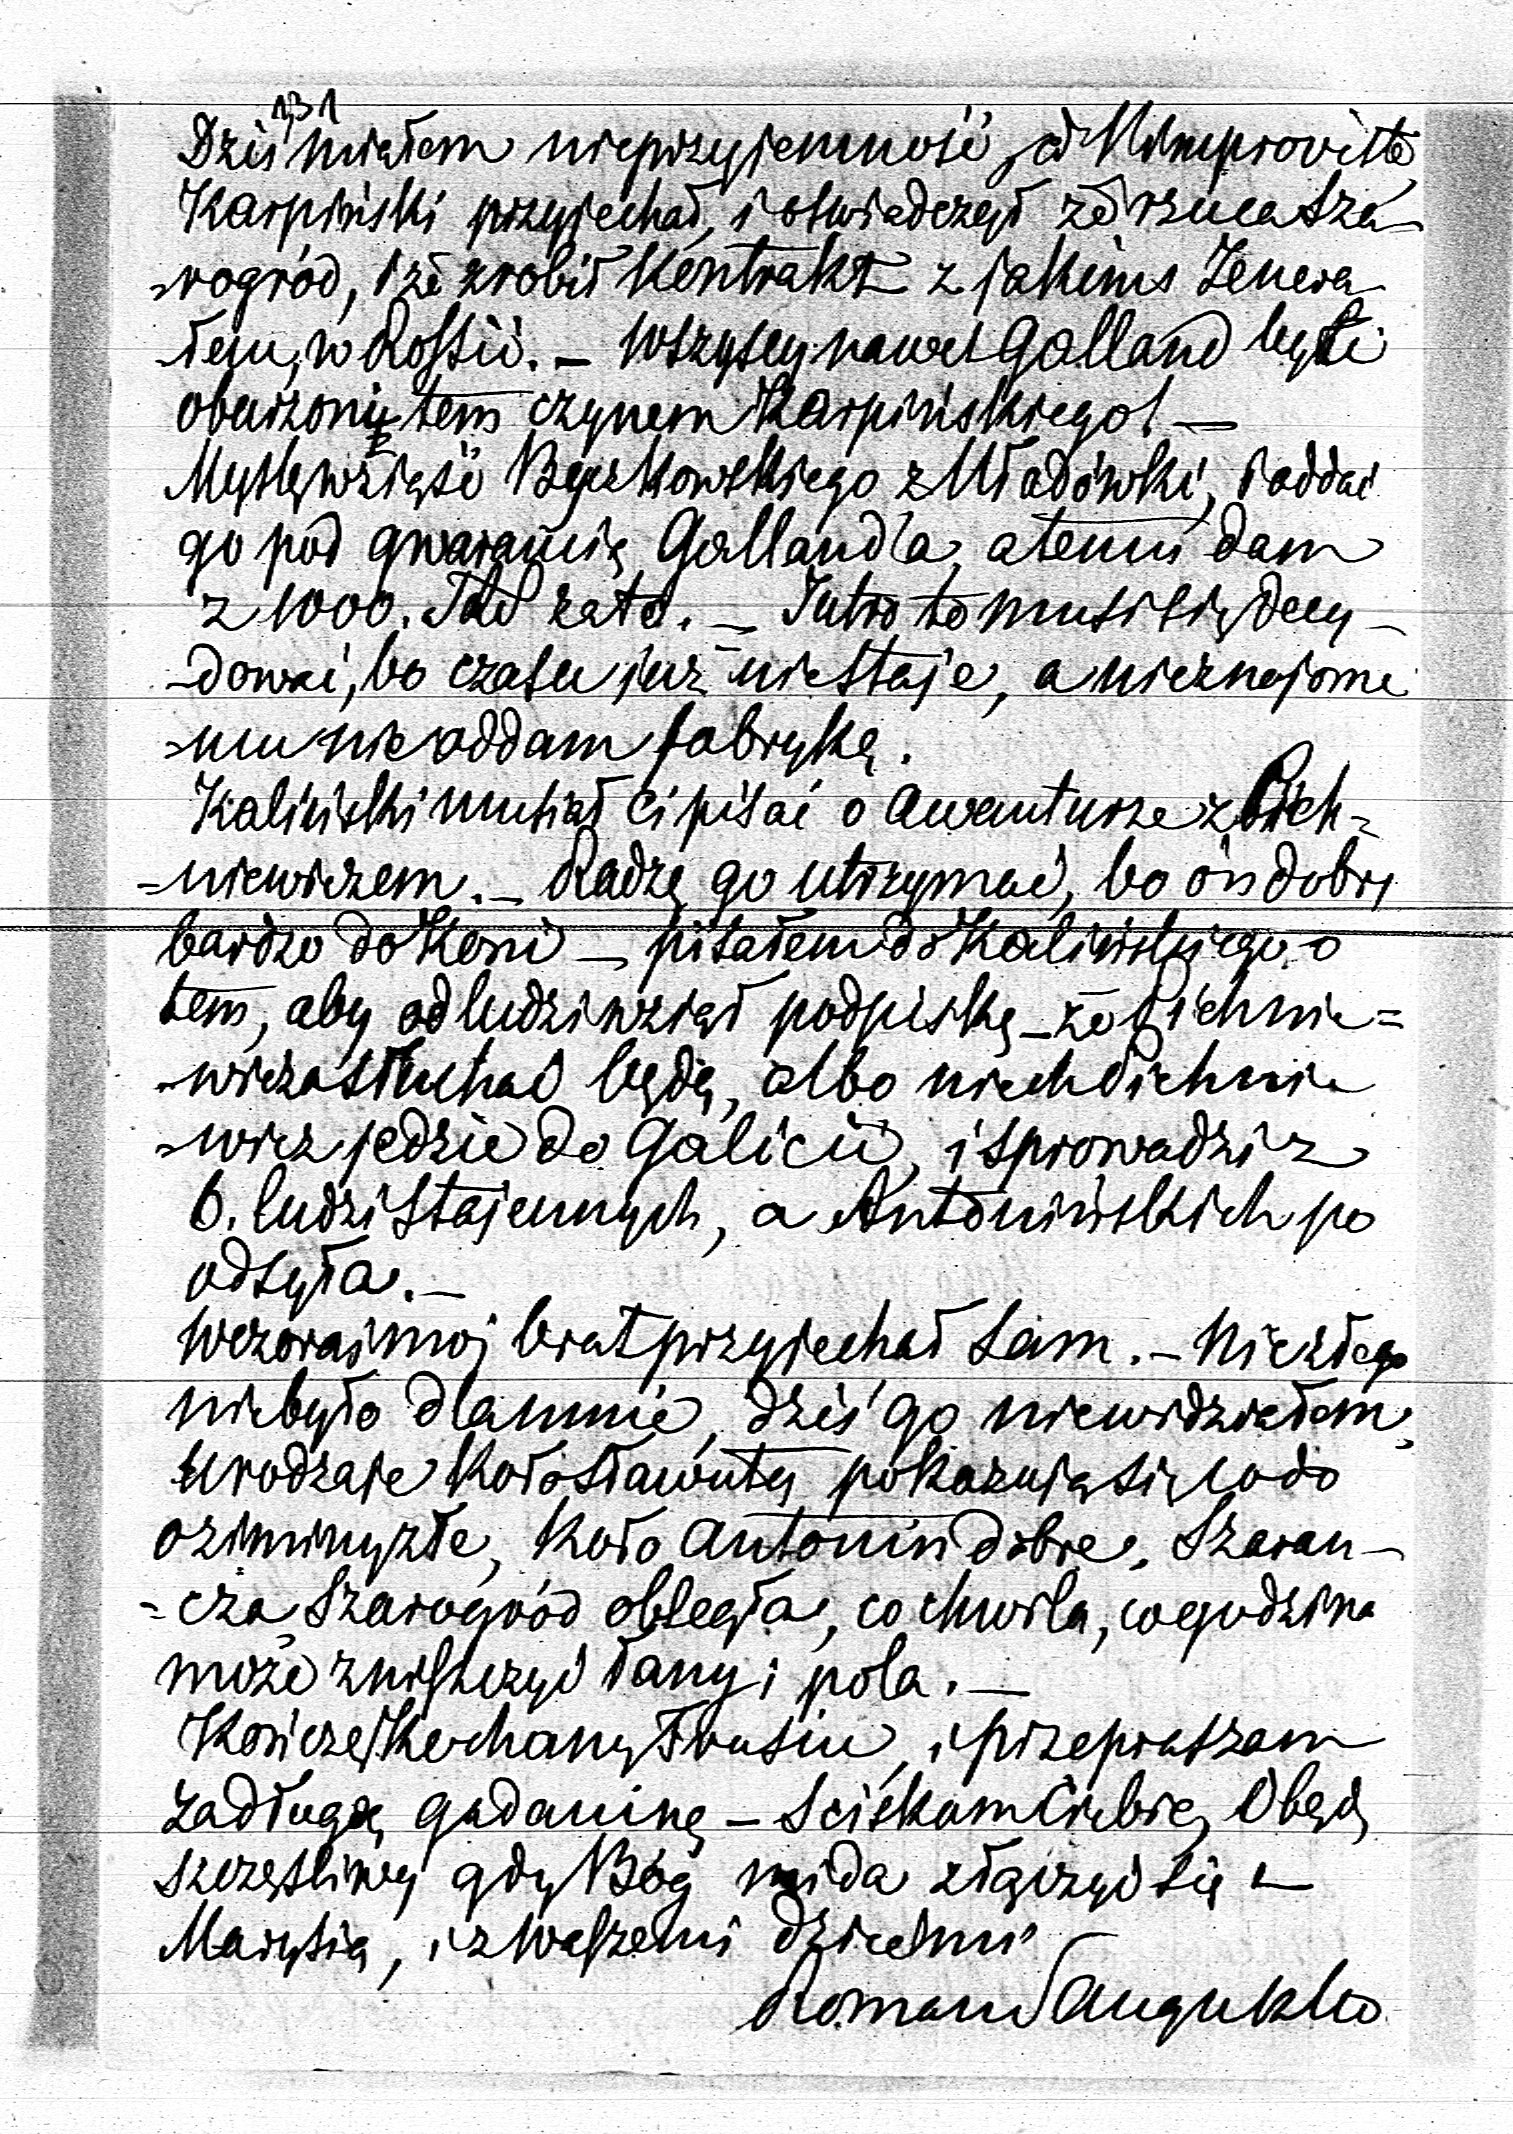 131
Dziś miałem nieprzyjemność, ad Improviste
Karpiński przyjechał, i oświadczył że rzuca Sza-
-rogród, i że zrobił kontrakt z jakimś Jenera-
-łem, w Rossii. – Wszyscy nawet Galland byli
oburzony tem czynem Karpińskiego! –
Myślę wziąść Byczkowskiego z Kładówki, i oddać
go pod gwarancią Galland'a, a temu dam
z 1000. Tal zato. – Jutro to musi się decy-
-dować, bo czasu już niestaje, a nieznajome
-mu nie oddam fabrykę.
Kaliński musiał Ci pisać o awanturze z Pich-
-niewiczem. – Radzę go utrzymać, bo on dobry
bardzo do Koni – pisałem do Kalińskiego o
tem, aby od ludzi wziął podpiskę – że Pichnie=
-wicza słuchać będą, albo niech Pichnie
-wicz jedzie do Galicii, i sprowadzi z
6. ludzi Stajennych, a Antonińskich po
odsyła. –
Wczoraj moj brat przyjechał sam. – Nic złego
niebyło dlamnie, dziś go niewidziałem,
Urodzaje koło Sławuty pokazują się co do
oziminy złe, koło Antonin dobre. Szarań-
=cza Szarogród obległa, co chwila, co godzina
może zniszczyć łany i pola. –
Kończę Kochany Trusiu, i przepraszam
za długą gadaninę – Sciskam Ciebie, i będę
szczęśliwy gdy Bóg mi da złączyć się z
Marysią, i z Waszemi dziećmi
Roman Sanguszko